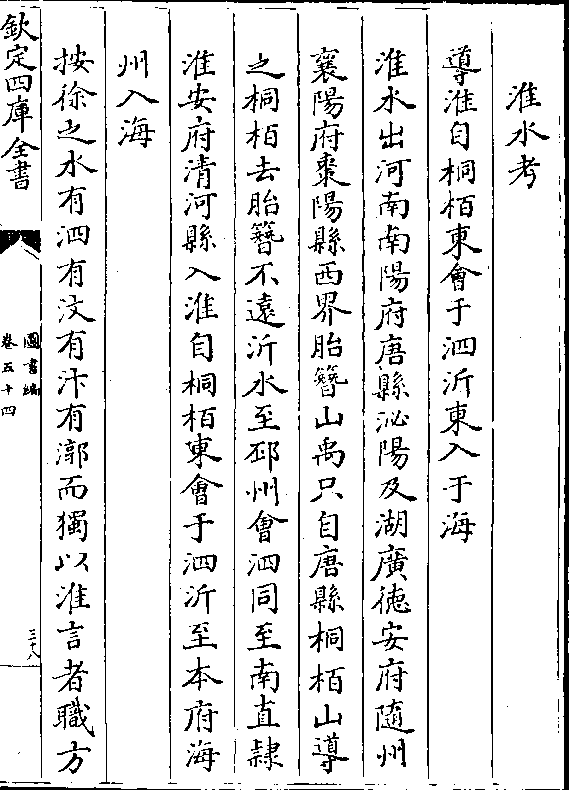 淮水考
導淮自桐栢東會于泗沂東入于海
淮水出河南南陽府唐縣泌陽及湖廣徳安府隨州
襄陽府棗陽縣西界胎簪山禹只自唐縣桐栢山導
之桐栢去胎簪不遠沂水至邳州會泗同至南直隷
淮安府清河縣入淮自桐栢東會于泗沂至本府海
州入海
按徐之水有泗有汶有汴有漷而獨以淮言者職方
欽定四庫全書
圖書編
卷五十四
三十八